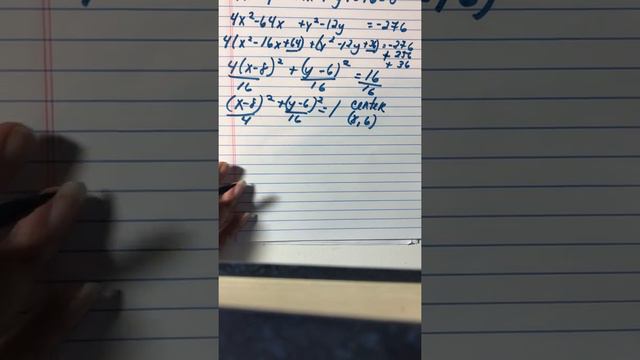 4x²-64x +y²-12y =-276
4(x²-16x+64)+(y²-12y+36)=-276
+256
+36
4(x-8)²/16 + (y-6)²/16 = 16/16
(x-8)²/4 + (y-6)²/16 = 1 center
(8,6)